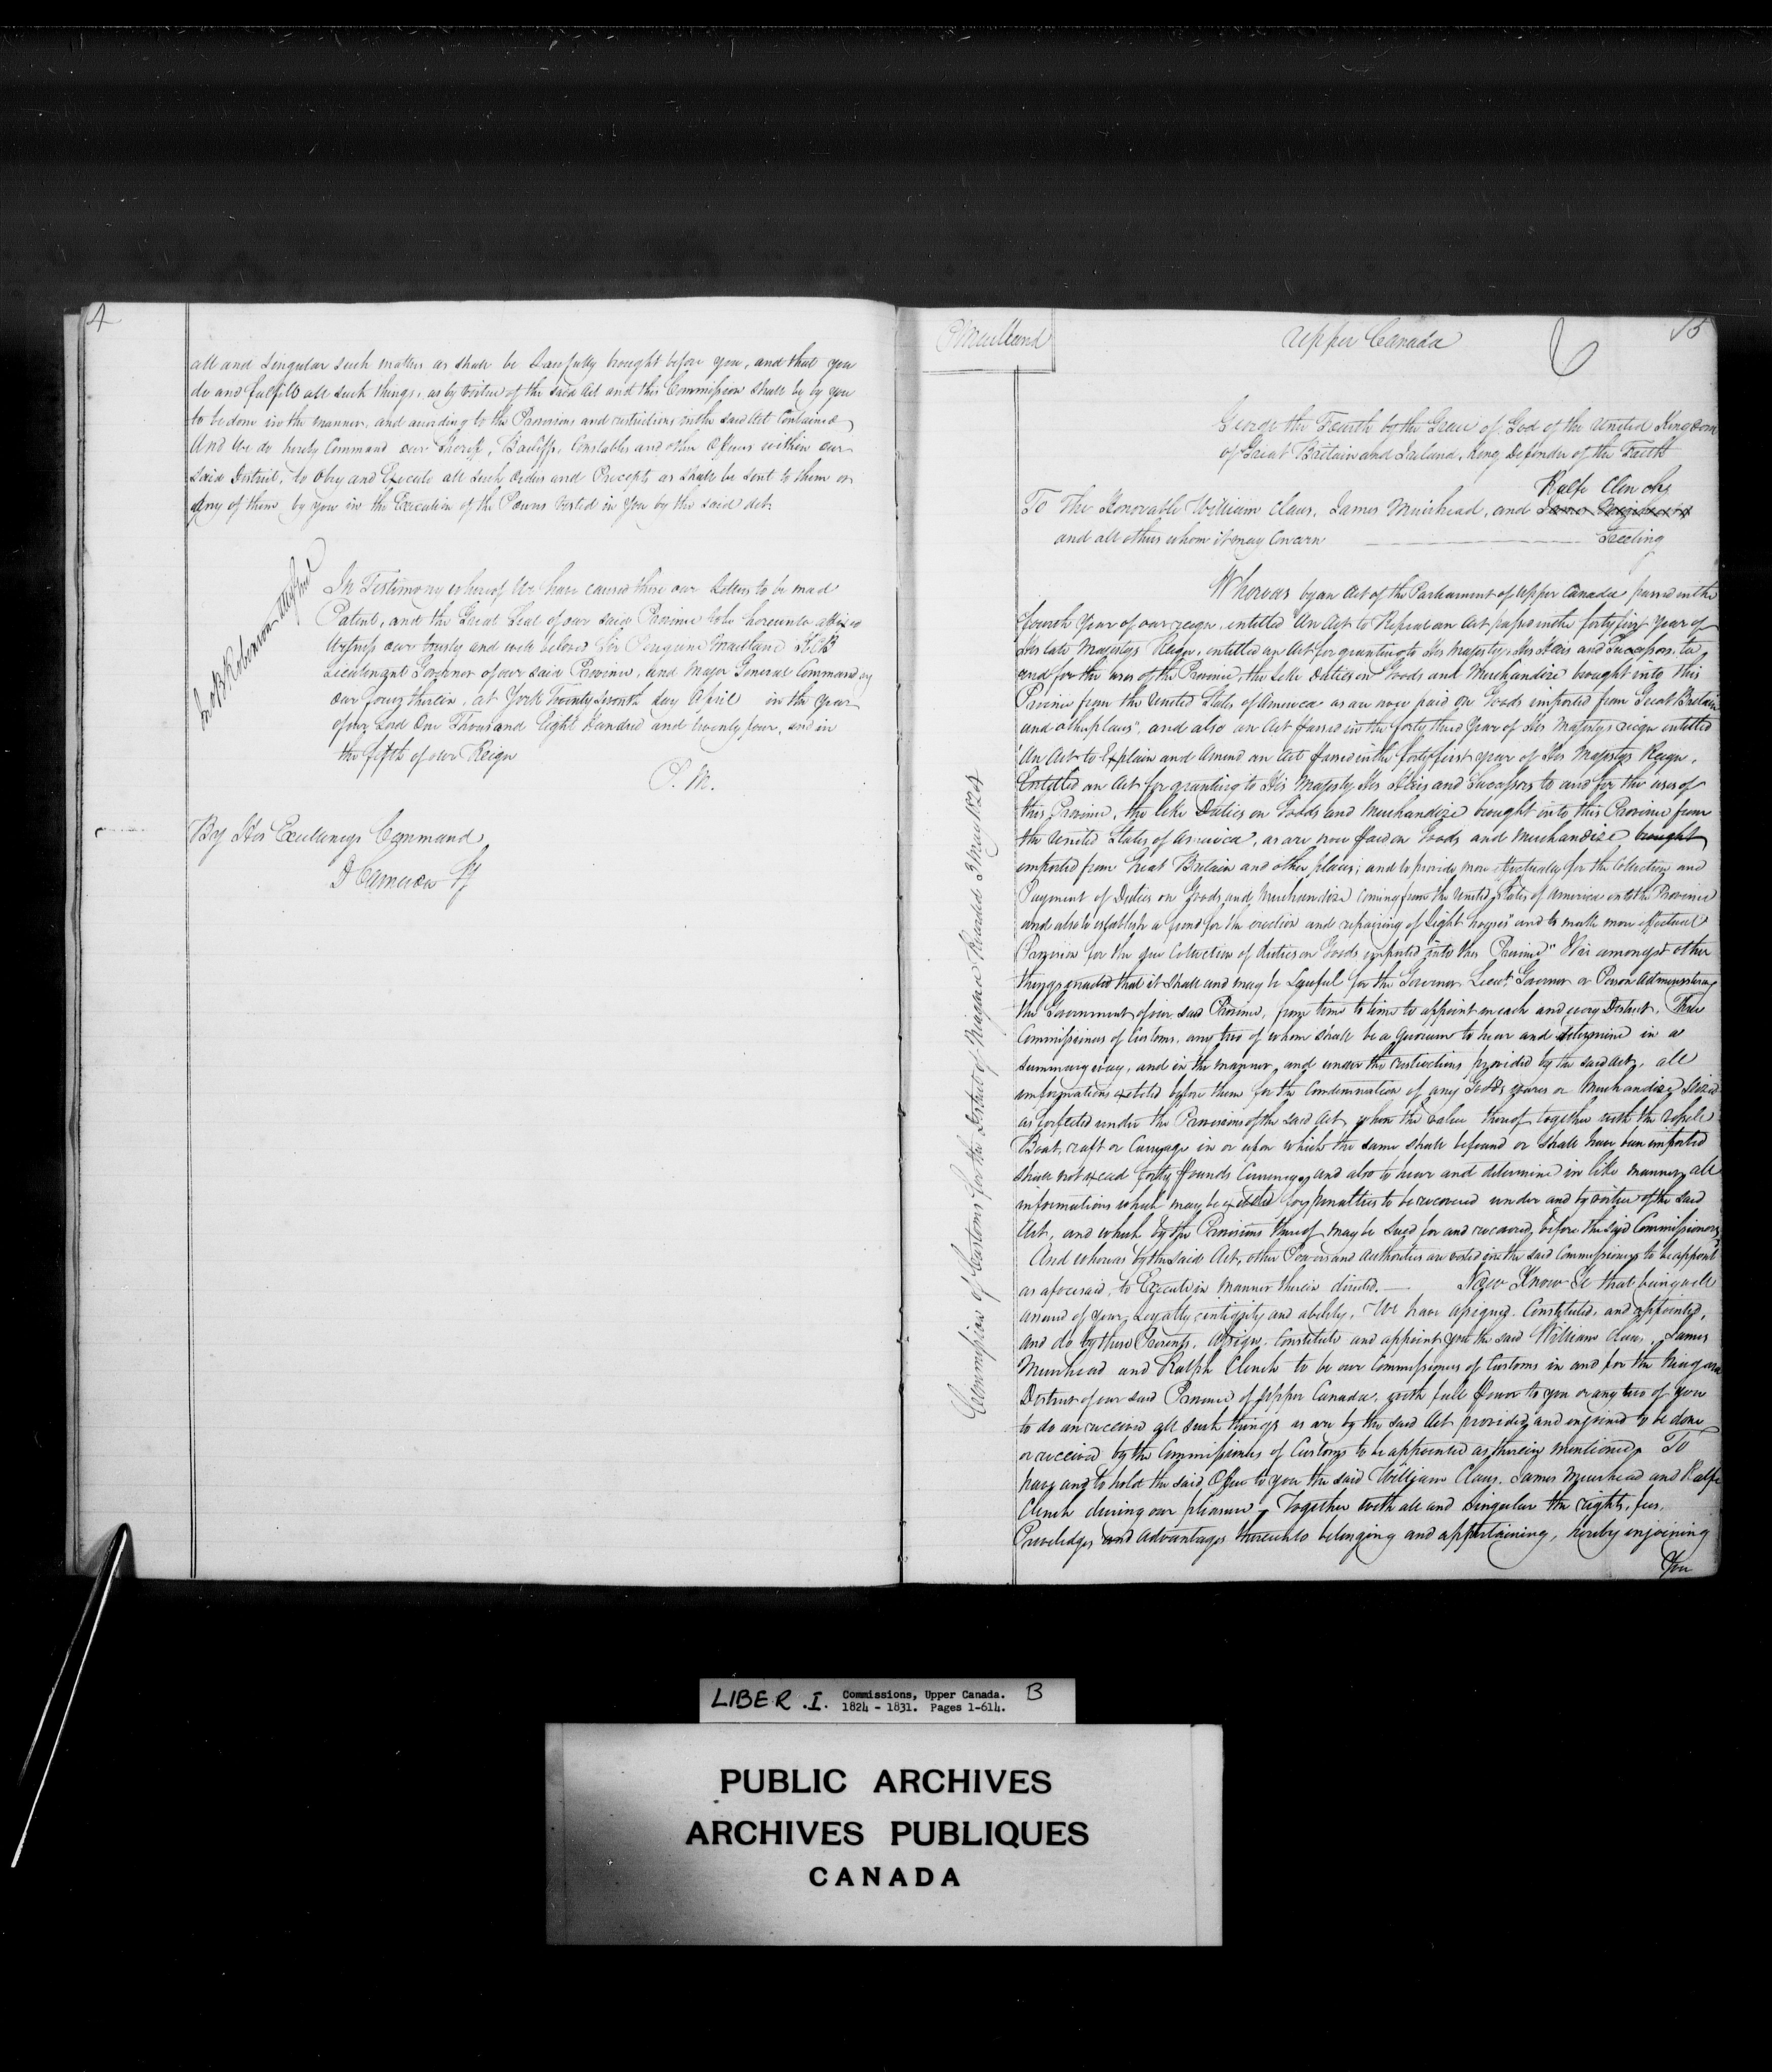 4
all and Singular Such matters as shall be Lawfully brought before you, and that you
do and fulfill all such things, as by virtue of the said Act and this Commission shall be by you
to be done in the manner, and according to the Provisions and restrictions in the said Act Contained
And We do hereby Command our Sheriff, Bailiffs, Constables and other Officers within our
said District, to Obey and Execute all such Orders and Precepts as shall be sent to them or
Any of them, by you in the Execution of the Powers Vested in You by the said Act.
Jno B Robinson Atty Genl
In Testimony whereof We have caused these our Letters to be mad
Patent, and the Great Seal of our said Province to be hereunto affixed
Witness our trusty and well beloved Sir Peregrine Maitland KCB
Lieutenant Governor of our said Province, and Major General Commanding
our forces therein, at York Twenty Seventh day April in the Year
of our Lord One Thousand Eight Hundred and twenty four, and in
the fifth of our Reign
P. M.
By His Excellencys Command
D Cameron Sy
P Maitland
Upper Canada
5
George the Fourth by the Grace of God of the United Kingdom
of Great Britain and Ireland, King, Defender of the Faith
Ralfe Clench
To The Honorable William Claus, James Muirhead, and James Muirhead
and all others whom it may Concern Greeting
Commission of Customs for the District of Niagara Recorded 3 May 1824
Whereas by an Act of the Parliament of Upper Canada, passed in the
fourth Year of our reign, entitled "An Act to Repeal an Act passed in the forty first Year of
His late Majestys Reign, entitled an Act for granting to His Majesty, His Heirs and Successors, to
and for the uses of the Province, the like duties on Goods and Merchandize brought into this
Province from the United States of America as are now paid on Goods imported from Great Britain
and other places", and also an Act passed in the forty third Year of His Majestys reign entitled
"An Act to Explain and Amend an Act passed in the forty first year of His Majestys Reign,
Entitled an Act for granting to His Majesty His Heirs and Successors to and for the uses of
this Province, the like Duties on Goods and Merchandize brought into this Province from
the United States of America, as are now paid on Goods and Merchandize brought
imported from Great Britain and other places; and to provide more effectually for the Collection and
Payment of Duties on Goods and Merchandize coming from the United States of America into this Province
and also to establish a fund for the erection and repairing of Light houses" and to make more effectual
Provision for the due Collection of duties on Goods imported into this Province" It is amongst other
things enacted that it shall and may be Lawful for the Governor, Lieut. Governor or Person Administering
the Government of our said Province, from time to time to appoint in each and every District, Three
Commissioners of Customs, any two of whom shall be a quorum to hear and determine in a
summary way, and in the manner, and under the restrictions provided by the said Act, all
informations exhibited before them for the Condemnation of any Goods wares or Merchandize, Seized
as forfeited under the Provisions of the said Act, when the value thereof together with the Vessel
Boat, craft or Carriage in or upon which the same shall be found or shall have been imported
shall not exceed forty Pounds Currency, and also to hear and determine in like manner, all
informations which may be exhibited for penalties to be recovered under and by virtue of the said
Act, and which by the Provisions thereof may be Sued for and recovered, before the said Commissioners
And whereas by the said Act, other Powers and Authorities are vested in the said Commissioners to be appoint
as aforesaid, to Execute in manner therein directed. Now Know Ye that being well
assured of your Loyalty, integrity and ability, We have assigned, Constituted, and appointed,
and do by these Presents, Assign, Constitute and appoint you the said William Claus, James
Muirhead and Ralph Clench to be our Commissioners of Customs in and for the Niagara
District of our said Province of Upper Canada, with full Power to you or any two of you
to do an receive all such things as are by the said Act provided and enjoined to be done
or received by the Commissioners of Customs to be appointed as therein mentioned, To
have and to hold the said Office to you the said William Claus, James Muirhead and Ralfe
Clench during our pleasure, Together with all and Singular the rights, fees,
Priveledges and Advantages thereunto belonging and appertaining, hereby enjoining
You
LIBER .I. Commissions, Upper Canada. B
1824 - 1831. Pages 1-614.
PUBLIC ARCHIVES
ARCHIVES PUBLIQUES
CANADA